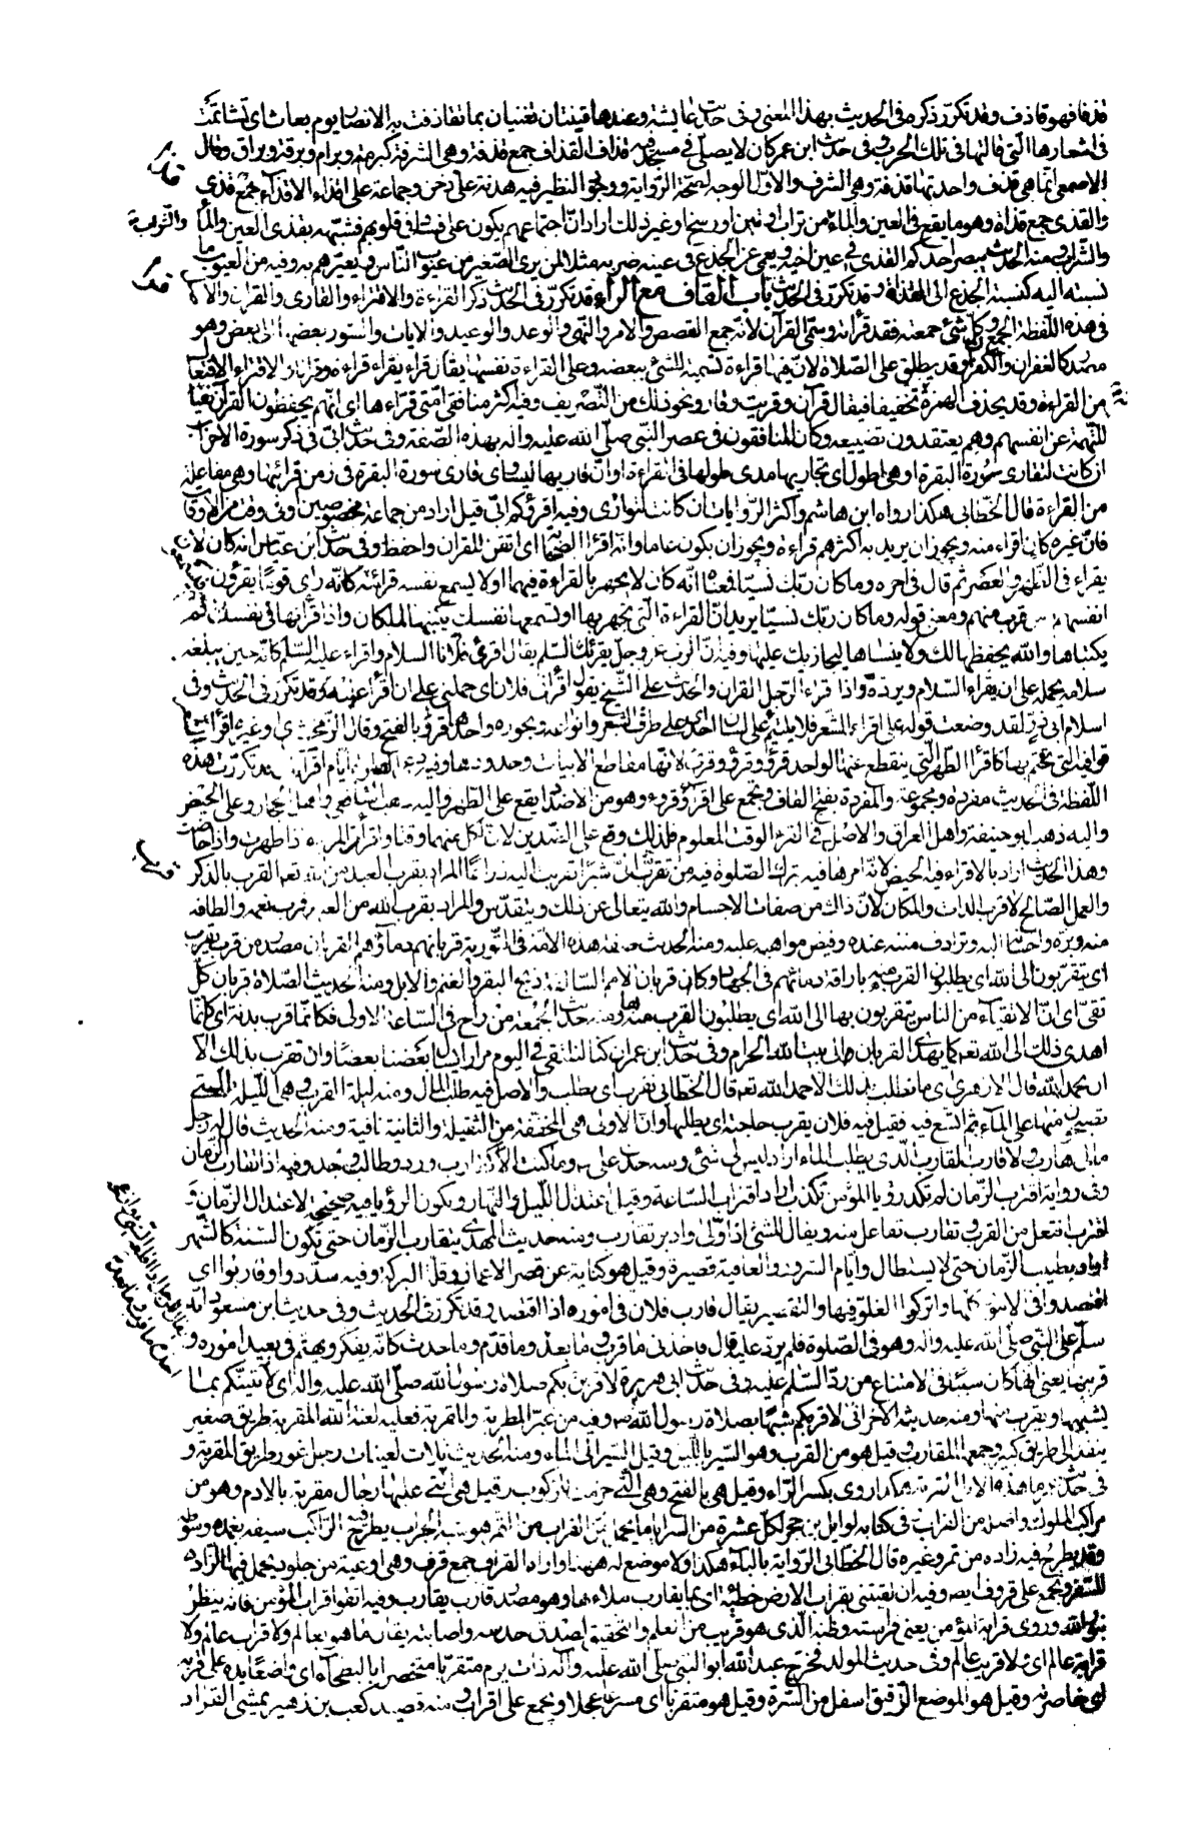 قذفا فهو قاذف وقد تكرر ذكره في الحديث بهذا المعنى وفي حديث عايشة وعندها قينتان تغنيان بما تقاذفت به الانصار يوم بعاث اي تشاتمت
في اشعارها التي قالتها في تلك الحروب وفي حديث ابن عمر كان لا يصلي في مسجد فيه قذاف القذاف جمع قذفة وهي الشرفة كبرمة وبرام وبرقة وبراق وقال
الاصمعي انما هي قذف واحدتها قذفة وهي الشرف والاول الوجه لصحة الرواية ووجود النظير فيه هدنة على دخن وجماعة على اقذاء الاقذاء جمع قذي
والقذى جمع قذاة وهو ما يقع في العين والماء من تراب او تبن او وسخ او غير ذلك اراد ان اجتماعهم يكون على فساد في قلوبهم فشبهه بقذى العين والماء
والشراب ومنه الحديث يبصر احدكم القذى في عين اخيه ويعمى عن الجذع في عينه ضربه مثلا لمن يرى الصغير من عيوب الناس ويعيرهم به وفيه من العيوب ما
نسبته اليه كنسبة الجذع الى القذاة وقد تكرر في الحديث باب القاف مع الراء قد تكرر في الحديث ذكر القراءة والاقتراء والقارى والقران والاصل
في هذه اللفظة الجمع وكل شئ جمعته فقد قرأته وسمي القرآن لانه جمع القصص والامر والنهي والوعد والوعيد والايات والسور بعضها الى بعض وهو
مصدر كالغفران والكفران وقد يطلق على الصلاة لان فيها قراءة تسمية للشئ ببعضه وعلى القراءة نفسها يقال قرأ يقراء قراءة وقرانا والاقتراء الافتعال
من القراءة وقد يحذف الهمزة تخفيفا فيقال قرآن وقريت وقار ونحو ذلك من التصريف وفيه اكثر منافقي امتي قراءها اى انهم يحفظون القرآن نفيا
للتهمة عن انفسهم وهم يعتقدون تضييعه وكان المنافقون في عصر النبي صلى الله عليه واله بهذه الصفة وفي حديث ابي في ذكر سورة الاحزاب
ان كانت لتقارى سورة البقرة او هي اطول اى تجاريها مدى طولها في القراءة او ان قاريها ليساوى قارى سورة البقرة في زمن قرائتها وهي مفاعلة
من القراءة قال الخطابي هكذا رواه ابن هاشم واكثر الروايات ان كانت لتوازى وفيه اقرؤكم ابي قيل اراد من جماعة مخصوصين او في وقت من الاوقات
فان غيره كان اقراء منه ويجوز ان يريد به اكثرهم قراءة ويجوز ان يكون عاما وانه اقرأ الصحابة اى اتقن للقران واحفظ وفي حديث ابن عباس انه كان لا
يقراء في الظهر والعصر ثم قال في اخره وما كان ربك نسيا معناه انه كان لا يجهر بالقراءة فيهما او لا يسمع نفسه قرائته كانه راى قوما يقرؤن
انفسهم ومن قرب منهم ومعنى قوله وما كان ربك نسيا يريد ان القراءة التي تجهر بها او تسمعها نفسك يكتبها الملكان واذا قرأتها في نفسك لم
يكتباها والله يحفظها لك ولا ينساها ليجازيك عليها وفيه ان الرب عز وجل يقرئك السلم يقال اقرئ فلانا السلام واقراء عليه السلم كانه حين يبلغه
سلامه يحمله على ان يقراء السلام ويرده واذا قرء الرجل القران والحديث على الشيخ يقول اقرأني فلان اى حملني على ان اقرأ عليه وقد تكرر في الحديث وفي
اسلام ابي ذر لقد وضعت قوله على اقراء الشعر فلا يلتئم على لسان احد اى على طرق الشعر وانواعه وبحوره واحدها قرؤ بالفتح وقال الزمخشري وغيره اقراء الشعر
قوافيه التي يختم بها كاقراء الطهر التي ينقطع عنها الواحد قرؤ وقرؤ وقرئ لانها مقاطع الابيات وحدودها وفيه دعى الصلوة ايام اقرائك قد تكررت هذه
اللفظة في الحديث مفردة ومجموعة والمفردة بفتح القاف وتجمع على اقراء وقروء وهو من الاضداد يقع على الطهر واليه ذهب الشافعي واهل الحجاز وعلى الحيض
واليه ذهب ابو حنيفة واهل العراق والاصل في القرء الوقت المعلوم فلذلك وقع على الضدين لان لكل منهما وقتا واقرأت المرءة اذا طهرت واذا حاضت
وهذا الحديث اراد بالاقراء فيه الحيض لانه امرها فيه بترك الصلوة فيه من تقرب الي شبرا تقربت اليه ذراعا المراد بقرب العبد من الله تعم القرب بالذكر
والعمل الصالح لا قرب الذات والمكان لان ذلك من صفات الاجسام والله يتعالى عن ذلك ويتقدس والمراد بقرب الله من العبد قرب نعمه والطافه
منه وبره واحسانه اليه وترادف مننه عنده وفيض مواهبه عليه ومنه الحديث صفة هذه الامة في التورية قربانهم دماؤهم القربان مصدر من قرب يقرب
اى يتقربون الى الله اى يطلبون القرب منه باراقة دمائهم في الجهاد وكان قربان الامم السالفة ذبح البقر والغنم والابل ومنه الحديث الصلاة قربان كل
تقي اى ان الاتقياء من الناس يتقربون بها الى الله اى يطلبون القرب منه بها ومنه حديث الجمعة من راح في الساعة الاولى فكانما قرب بدنة اى كانما
اهدى ذلك الى الله تعم كما يهدى القربان الى بيت الله الحرام وفي حديث ابن عمر ان كنا لنلتقي في اليوم مرارا يسال بعضنا بعضا وان نقرب بذلك الا
ان نحمد الله قال الازهرى اى ما نطلب بذلك الا حمد الله تعم قال الخطابي نقرب اى نطلب والاصل فيه طلب الماء ومنه ليلة القرب وهي الليلة التي
تصبحون منها على الماء ثم اتسع فيه فقيل فيه فلان يقرب حاجته اى يطلبها وان الاولى هي المخففة من الثقيلة والثانية نافية ومنه الحديث قال له رجل
مالي هارب ولا قارب القارب الذى يطلب الماء اراد ليس لي شئ ومنه حديث علي وما كنت الا كقارب ورد وطالب وجد وفيه اذا تقارب الزمان
وفي رواية اقترب الزمان لم تكد رؤيا المؤمن تكذب اراد اقتراب الساعة وقيل اعتدال الليل والنهار وتكون الرؤيا فيه صحيحة لاعتدال الزمان و
اقترب افتعل من القرب وتقارب تفاعل منه ويقال للشئ اذا ولى وادبر تقارب ومنه حديث المهدي يتقارب الزمان حتى تكون السنة كالشهر
اراد يطيب الزمان حتى لا يستطال وايام السرور والعافية قصيرة وقيل هو كناية عن قصر الاعمار وقلة البركة وفيه سددوا وقاربوا اى
اقتصدوا في الامور كلها واتركوا الغلو فيها والتقصير يقال قارب فلان في اموره اذا اقتصد وقد تكرر في الحديث وفي حديث ابن مسعود انه
سلم على النبي صلى الله عليه واله وهو في الصلوة فلم يرد عليه قال فاخذني ما قرب وما بعد وما قدم وما حدث كانه يفكر ويهتم في بعيد اموره و
قريبها يعني ايها كان سببا في الامتناع من رد السلم عليه وفي حديث ابي هريرة لاقربن بكم صلاة رسول الله صلى الله عليه واله اى لاتينكم بما
يشبهها ويقرب منها ومنه حديثه الاخر اني لاقربكم شبها بصلاة رسول الله وفيه من غير المطربة والمقربة فعليه لعنة الله المقربة طريق صغير
ينفذ الى طريق كبير وجمعها المقارب وقيل هو من القرب وهو السير بالليل وقيل السير الى الماء ومنه الحديث ثلاث لعينات رجل غور طريق المقربة و
في حديث عمر ما هذه الابل المقربة هكذا روى بكسر الراء وقيل هي بالفتح وهي التي حزمت للركوب وقيل هي التي عليها رحال مقربة بالادم وهو من
مراكب الملوك واصله من القراب في كتابه لوايل بن حجر لكل عشرة من السرايا ما يحمل القراب من التمر هو شبه الجراب يطرح فيه الراكب سيفه بغمده وسوطه
وقد يطرح فيه زاده من تمر وغيره قال الخطابي الرواية بالباء هكذا ولا موضع له ههنا واراه القراف جمع قرف وهي اوعية من جلود يحمل فيها الزاد
للسفر ويجمع على قروف ايضا وفيه ان لقيتني بقراب الارض خطيئة اى بما يقارب ملاءها وهو مصدر قارب يقارب وفيه اتقوا قراب المؤمن فانه ينظر
بنور الله وروى قرابة المؤمن يعني فراسته وظنه الذى هو قريب من العلم والتحقق لصدق حدسه واصابته يقال ما هو بعالم ولا قراب عالم ولا
قرابة عالم اى ولا قريب عالم وفي حديث المولد فخرج عبد الله ابو النبي صلى الله عليه وآله ذات يوم متقربا متخصرا بالبطحاء اى واضعا يده على قربه
اى خاصرته وقيل هو الموضع الرقيق اسفل من السرة وقيل هو متقربا اى مسرعا عجلا ويجمع على اقراب ومنه قصيد كعب بن زهير يمشي القراد